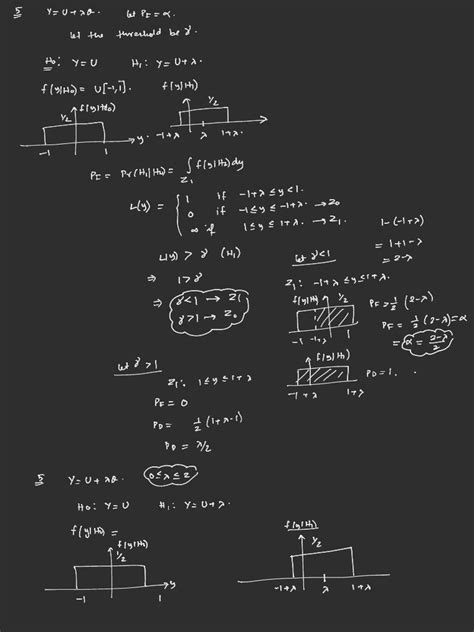 5 Y = U + λθ. Let P_F = α.
Let the threshold be γ.
H₀: Y = U H₁: Y = U + λ.
f(y|H₀) = U[-1,1]. f(y|H₁)
f(y|H₀) 1/2
1/2
-1 1 y. -1+λ λ 1+λ
P_F = Pr(H₁|H₀) = ∫_{Z₁} f(y|H₀) dy
L(y) = { 1 if -1+λ ≤ y < 1.
0 if -1 ≤ y ≤ -1+λ. → Z₀
∞ if 1 ≤ y ≤ 1+λ. → Z₁.
L(y) > γ (H₁)
⇒ 1 > γ
⇒ γ < 1 → Z₁
γ > 1 → Z₀
1-(-1+λ)
= 1+1-λ
= 2-λ
Let γ < 1
Z₁: -1+λ ≤ y ≤ 1+λ.
f(y|H₀) 1/2
P_F = 1/2 (2-λ)
P_F = 1/2 (2-λ) = α
= α = (2-λ)/2
-1 -1+λ 1
f(y|H₁)
P_D = 1.
-1+λ 1+λ
Let γ > 1
Z₁: 1 ≤ y ≤ 1+λ
P_F = 0
P_D = 1/2 (1+λ-1)
P_D = λ/2
5 Y = U + λθ. 0 ≤ λ ≤ 2
H₀: Y = U H₁: Y = U + λ.
f(y|H₀) =
f(y|H₀) f(y|H₁)
1/2 1/2
-1 1 y -1+λ λ 1+λ